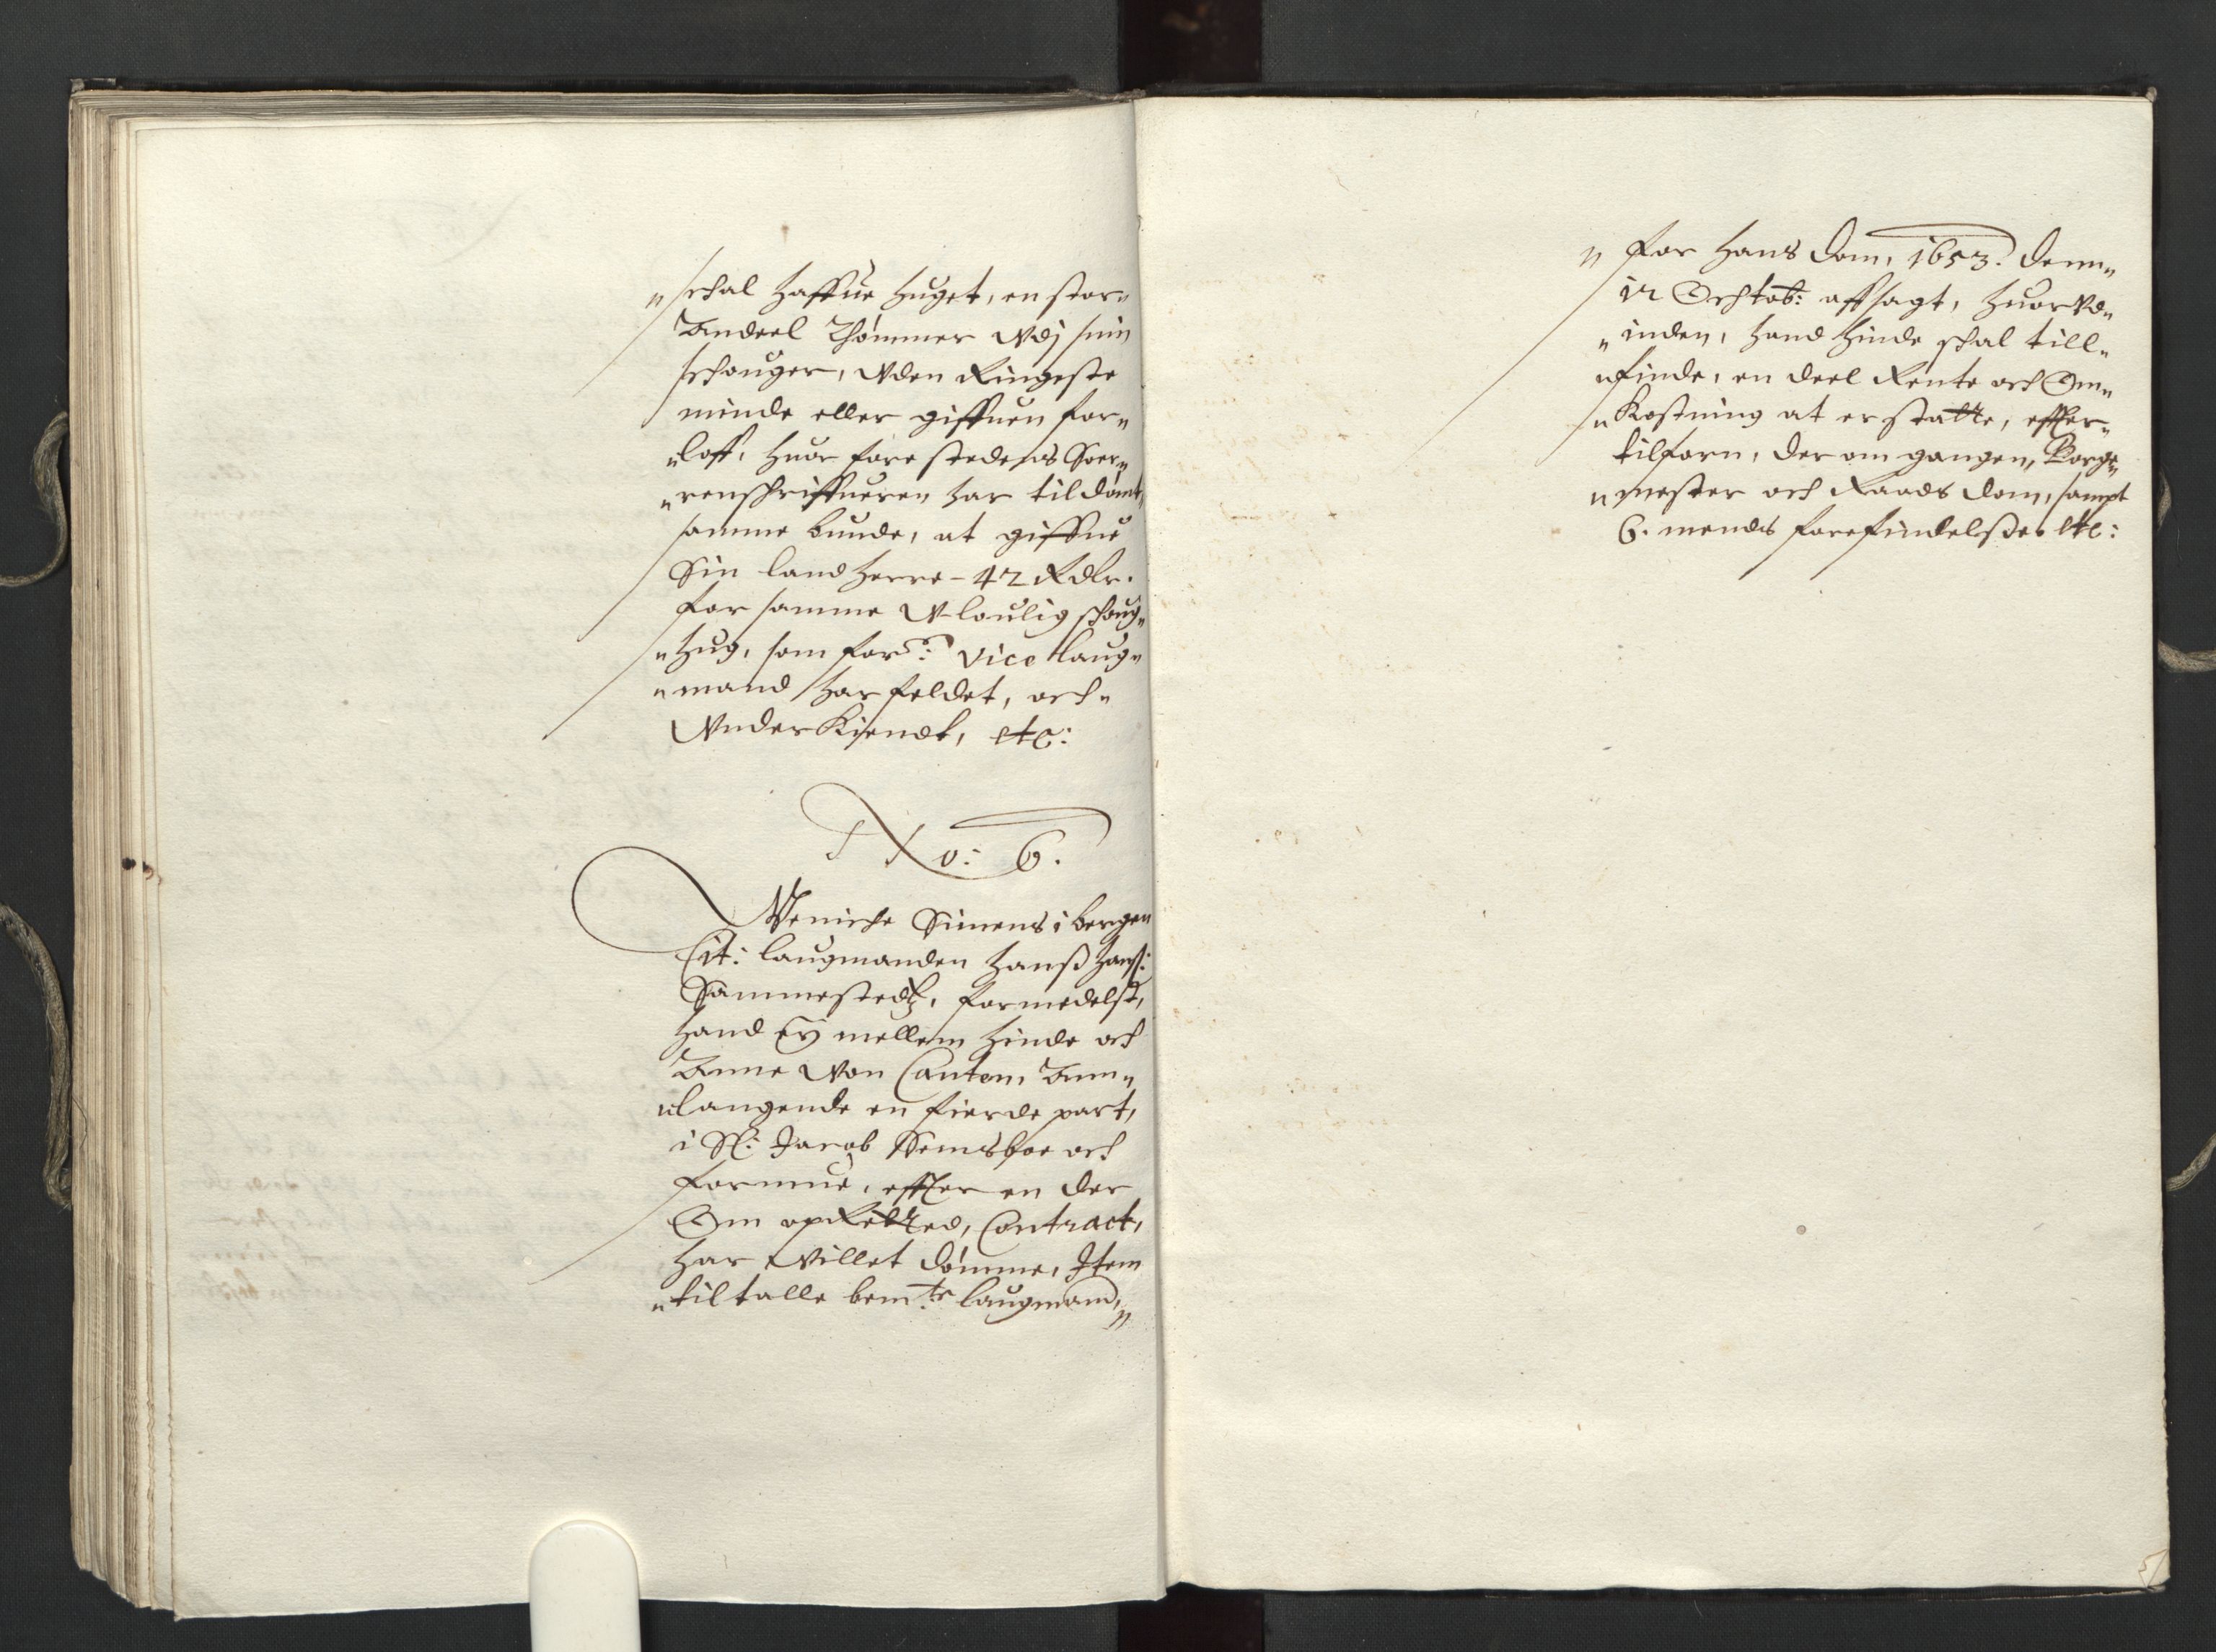 „ schal haffue huget, en stor„
Andeel Thømmer Vdj sin
schouger, Vden Ringeste
minde eller giffuen for„
„loff, huor fore stedens Soer„
„renschriffueren har tildømt,
samme bunde, at giffue
Sin landherre – 42 Rdlr.
for samme V-loulig schoug„
„hug, som for.ne: Vice Laug„
„mand har feldet, och„
VnderKiendt, etc:
No: 6.
Weniche Simens i bergen
Cit: laugmanden Hanß Hanß:
formedelst,
hand Ey mellem hinde och
Anne Von Cantem, Ann„
„langende en fierde part,
i Sl: Jacob boe och
formue, effter en der
Om opRetted, Contract,
har Villet dømme, Item
„tiltalle bem.te laugmand,„
„ for hans dom, 1653. denn„
12 Ochtob: affsagt, huorVd„
„inden, hand hinde schal till„
„finde, en deel Rente och Om„
„Kostning at erstatte, effter„
tilforn, der om gangen, Borge„
„mester och Raads dom, sampt
6. mends forefindelßer etc: